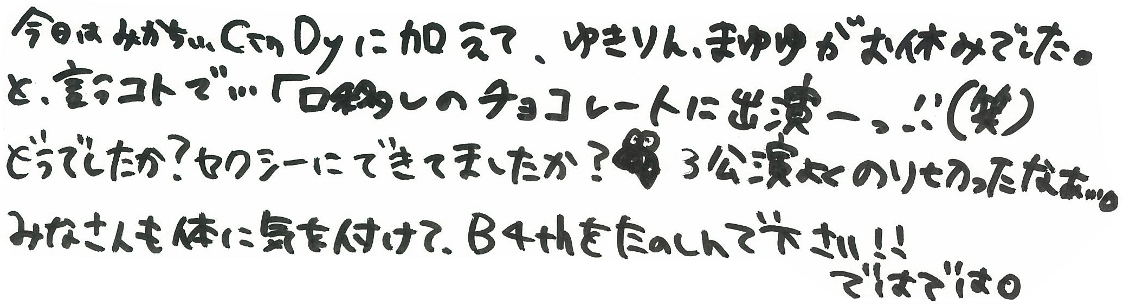 今日はみかちぃ、CinDyに加えて、ゆきりん、まゆゆがお休みでした。
と、言うコトで…「口移しのチョコレートに出演ーっ!!(笑)
どうでしたか?セクシーにできてましたか? 3公演よくのりせつったなぁ…。
みなさんも体に気を付けて、B4thをたのしんで下さい!!
ではでは。